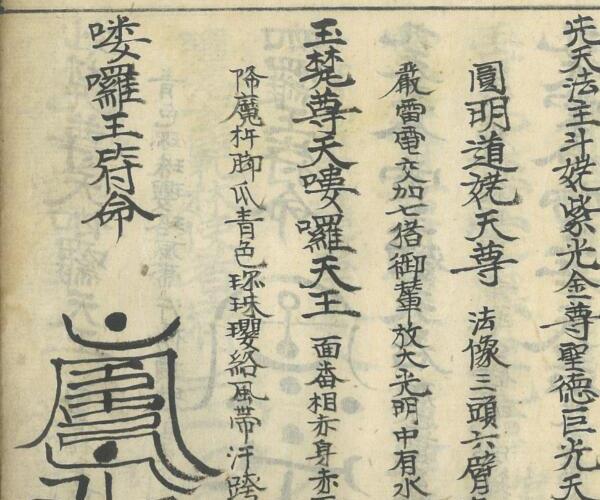 先天法主斗姥紫光金尊聖德巨光天
圓明道姥天尊 法像三頭六臂
嚴雷電交加七猪御輦放大光明中有水
玉梵尊天嘍囉天王 面番相赤身赤
降魔杵脚爪青色珠瓔絡風帶汗跨
嘍囉王符命